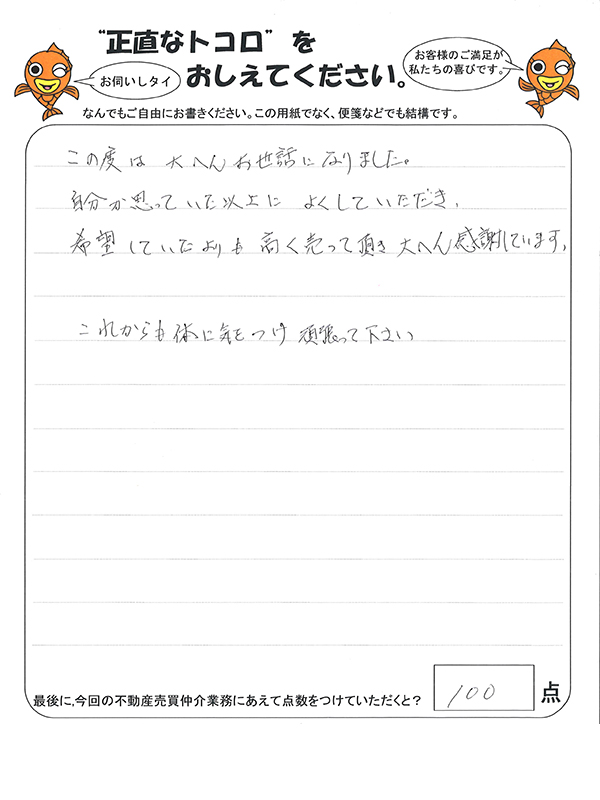 "正直なトコロ"を
おしえてください。
お伺いしタイ
お客様のご満足が
私たちの喜びです。
なんでもご自由にお書きください。この用紙でなく、便箋などでも結構です。
この度は 大へんお世話になりました。
自分が思っていた以上に よくしていただき、
希望していたよりも 高く売って頂き 大へん感謝しています。
これからも体に気をつけ 頑張って下さい
最後に,今回の不動産売買仲介業務にあえて点数をつけていただくと?
100 点